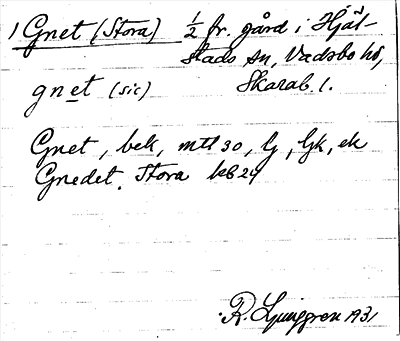 1 Gnet (Stora) 1/2 fr. gård i Hjäl-
stads sn, Vadsbo hd,
gnet (sic) Skarab. l.
Gnet, bek, mtl 30, G, Gk, ek
Gnedet, Stora kb 24
R. Ljunggren 1931